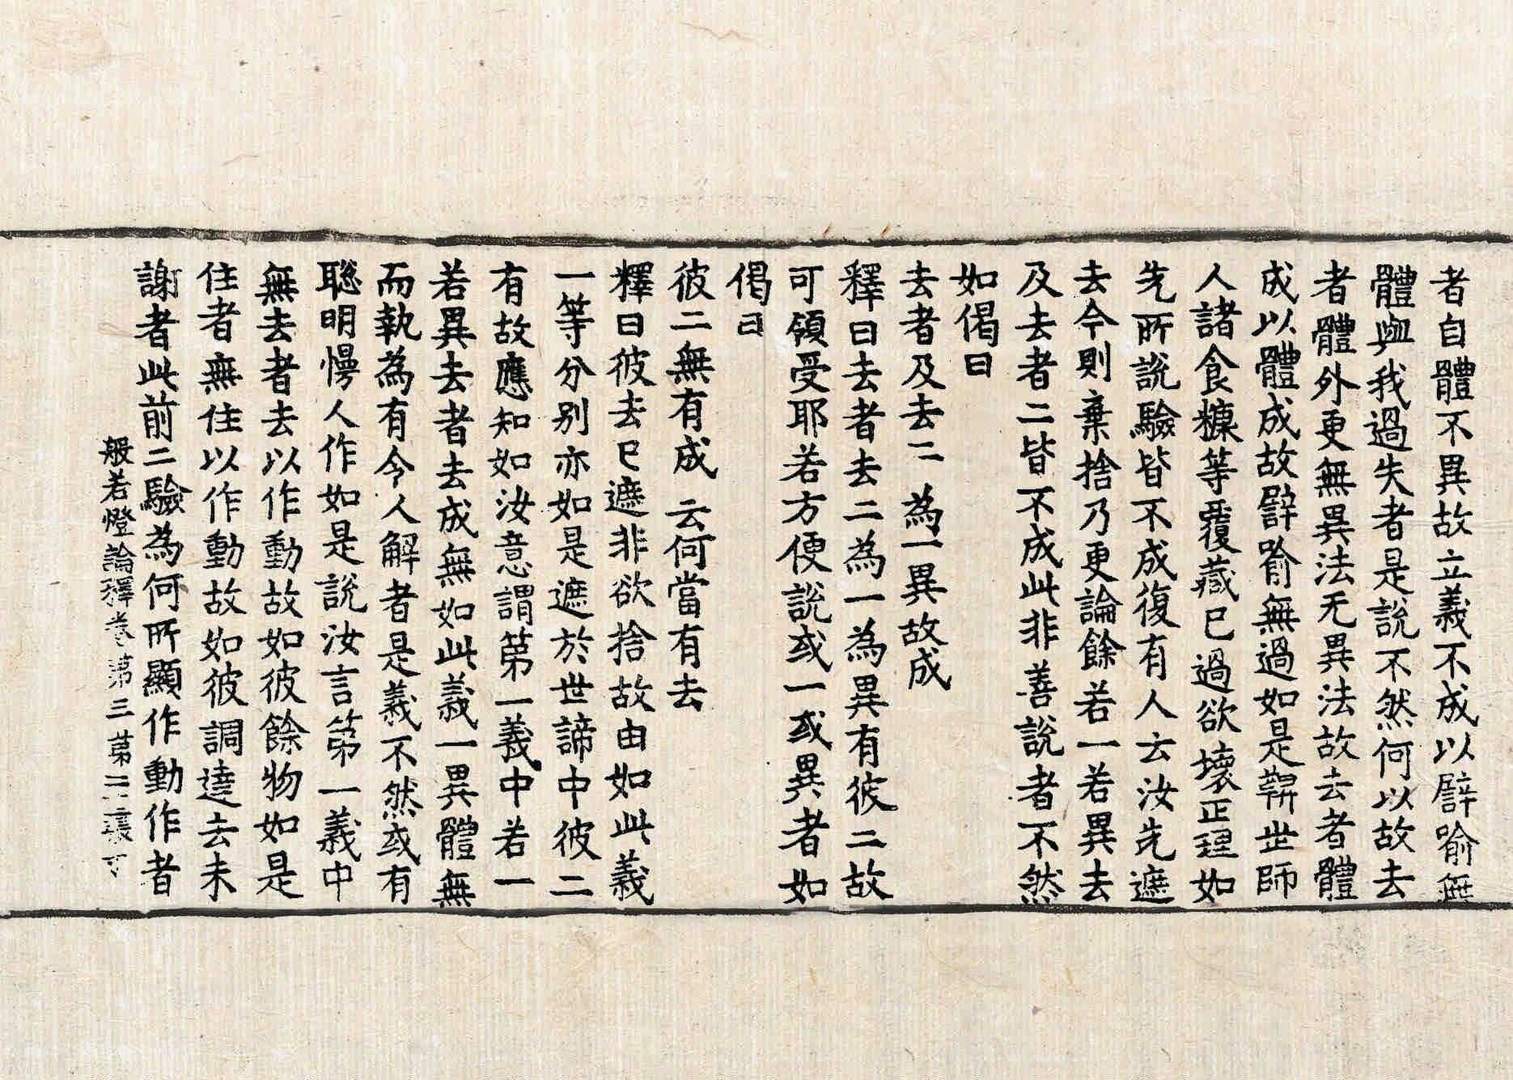 者自體不異故立義不成以譬喻無
體與我過失者是說不然何以故去
者體外更無異法无異法故去者體
成以體成故譬喻無過如是鞞世師
人諸食糠等覆藏已過欲壞正理如
先所說驗皆不成復有人云汝先遮
去今則棄捨乃更論餘若一若異去
及去者二皆不成此非善說者不然
如偈曰
去者及去二 為一異故成
釋曰去者去二為一為異有彼二故
可領受耶若方便說或一或異者如
偈曰
彼二無有成 云何當有去
釋曰彼去已遮非欲捨故由如此義
一等分別亦如是遮於世諦中彼二
有故應知如汝意謂第一義中若一
若異去者去成無如此義一異體無
而執為有今人解者是義不然或有
聡明慢人作如是說汝言第一義中
無去者去以作動故如彼餘物如是
住者無住以作動故如彼調達去未
謝者此前二驗為何所顯作動作者
般若燈論釋卷第三第二十張